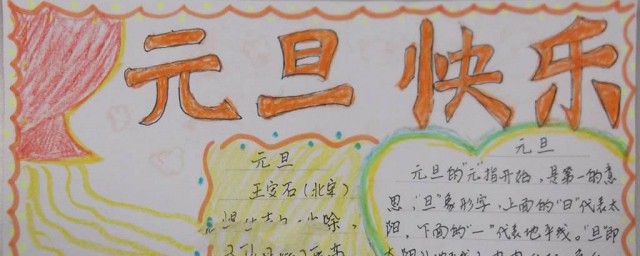 元旦 快乐
元旦
王安石(北宋)
除,
元旦
元旦的"元"指开始,是第一的意
思,"旦"象形字,上面的"日"代表太
阳,下面的"一"代表地平线。"旦"即